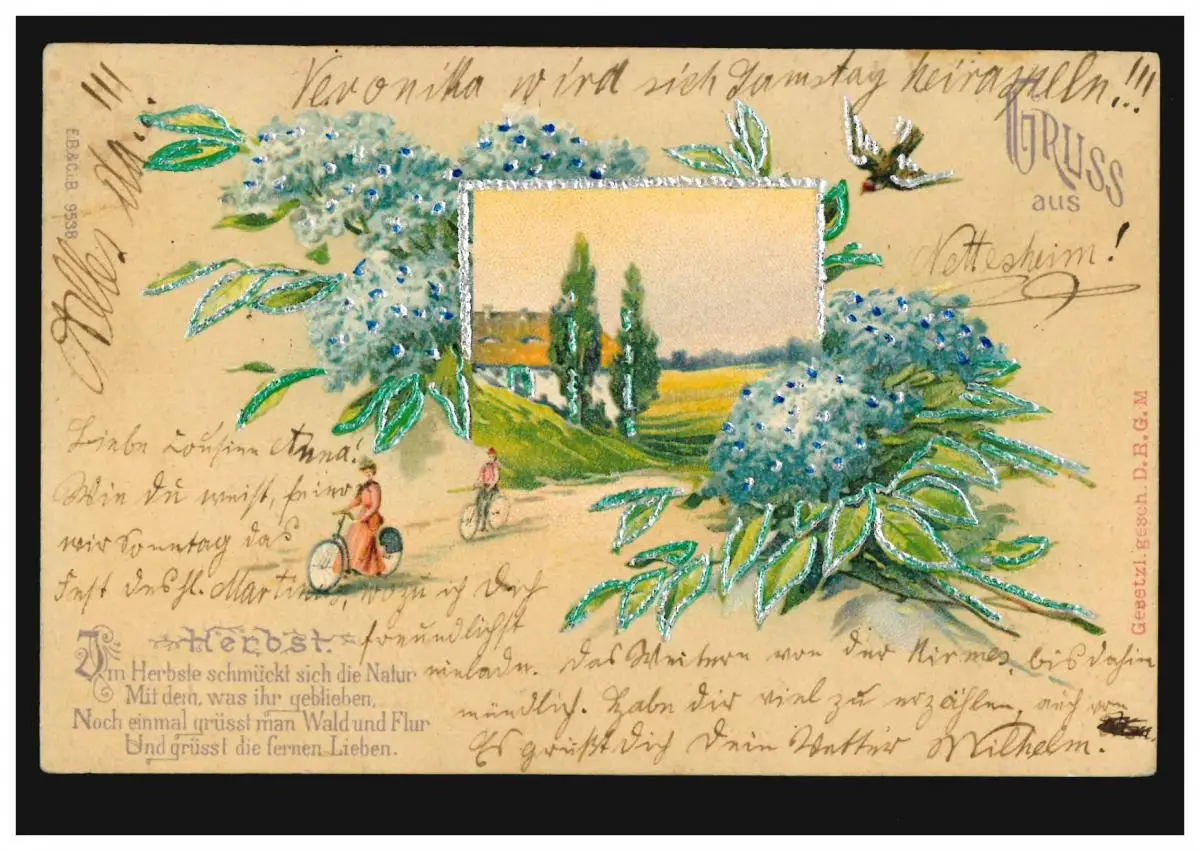 Veronika wird sich Samstag heirasseln!!!
Alles da!!!
E.B.&C.i.B. 9538
GRUSS
aus
Nettesheim!
Liebe Cousine Anna!
Wie du weißt, feiern
wir Sonntag das
Fest des hl. Martinus, wozu ich Dich
freundlichst
einlade. Das Weitere von der Kirmes bis dahin
mündlich. Habe dir viel zu erzählen, auch von
Es grüßt Dich Dein Vetter Wilhelm.
Herbst.
Im Herbste schmückt sich die Natur
Mit dem, was ihr geblieben,
Noch einmal grüsst man Wald und Flur
Und grüsst die fernen Lieben.
Gesetzl. gesch. D. R. G. M